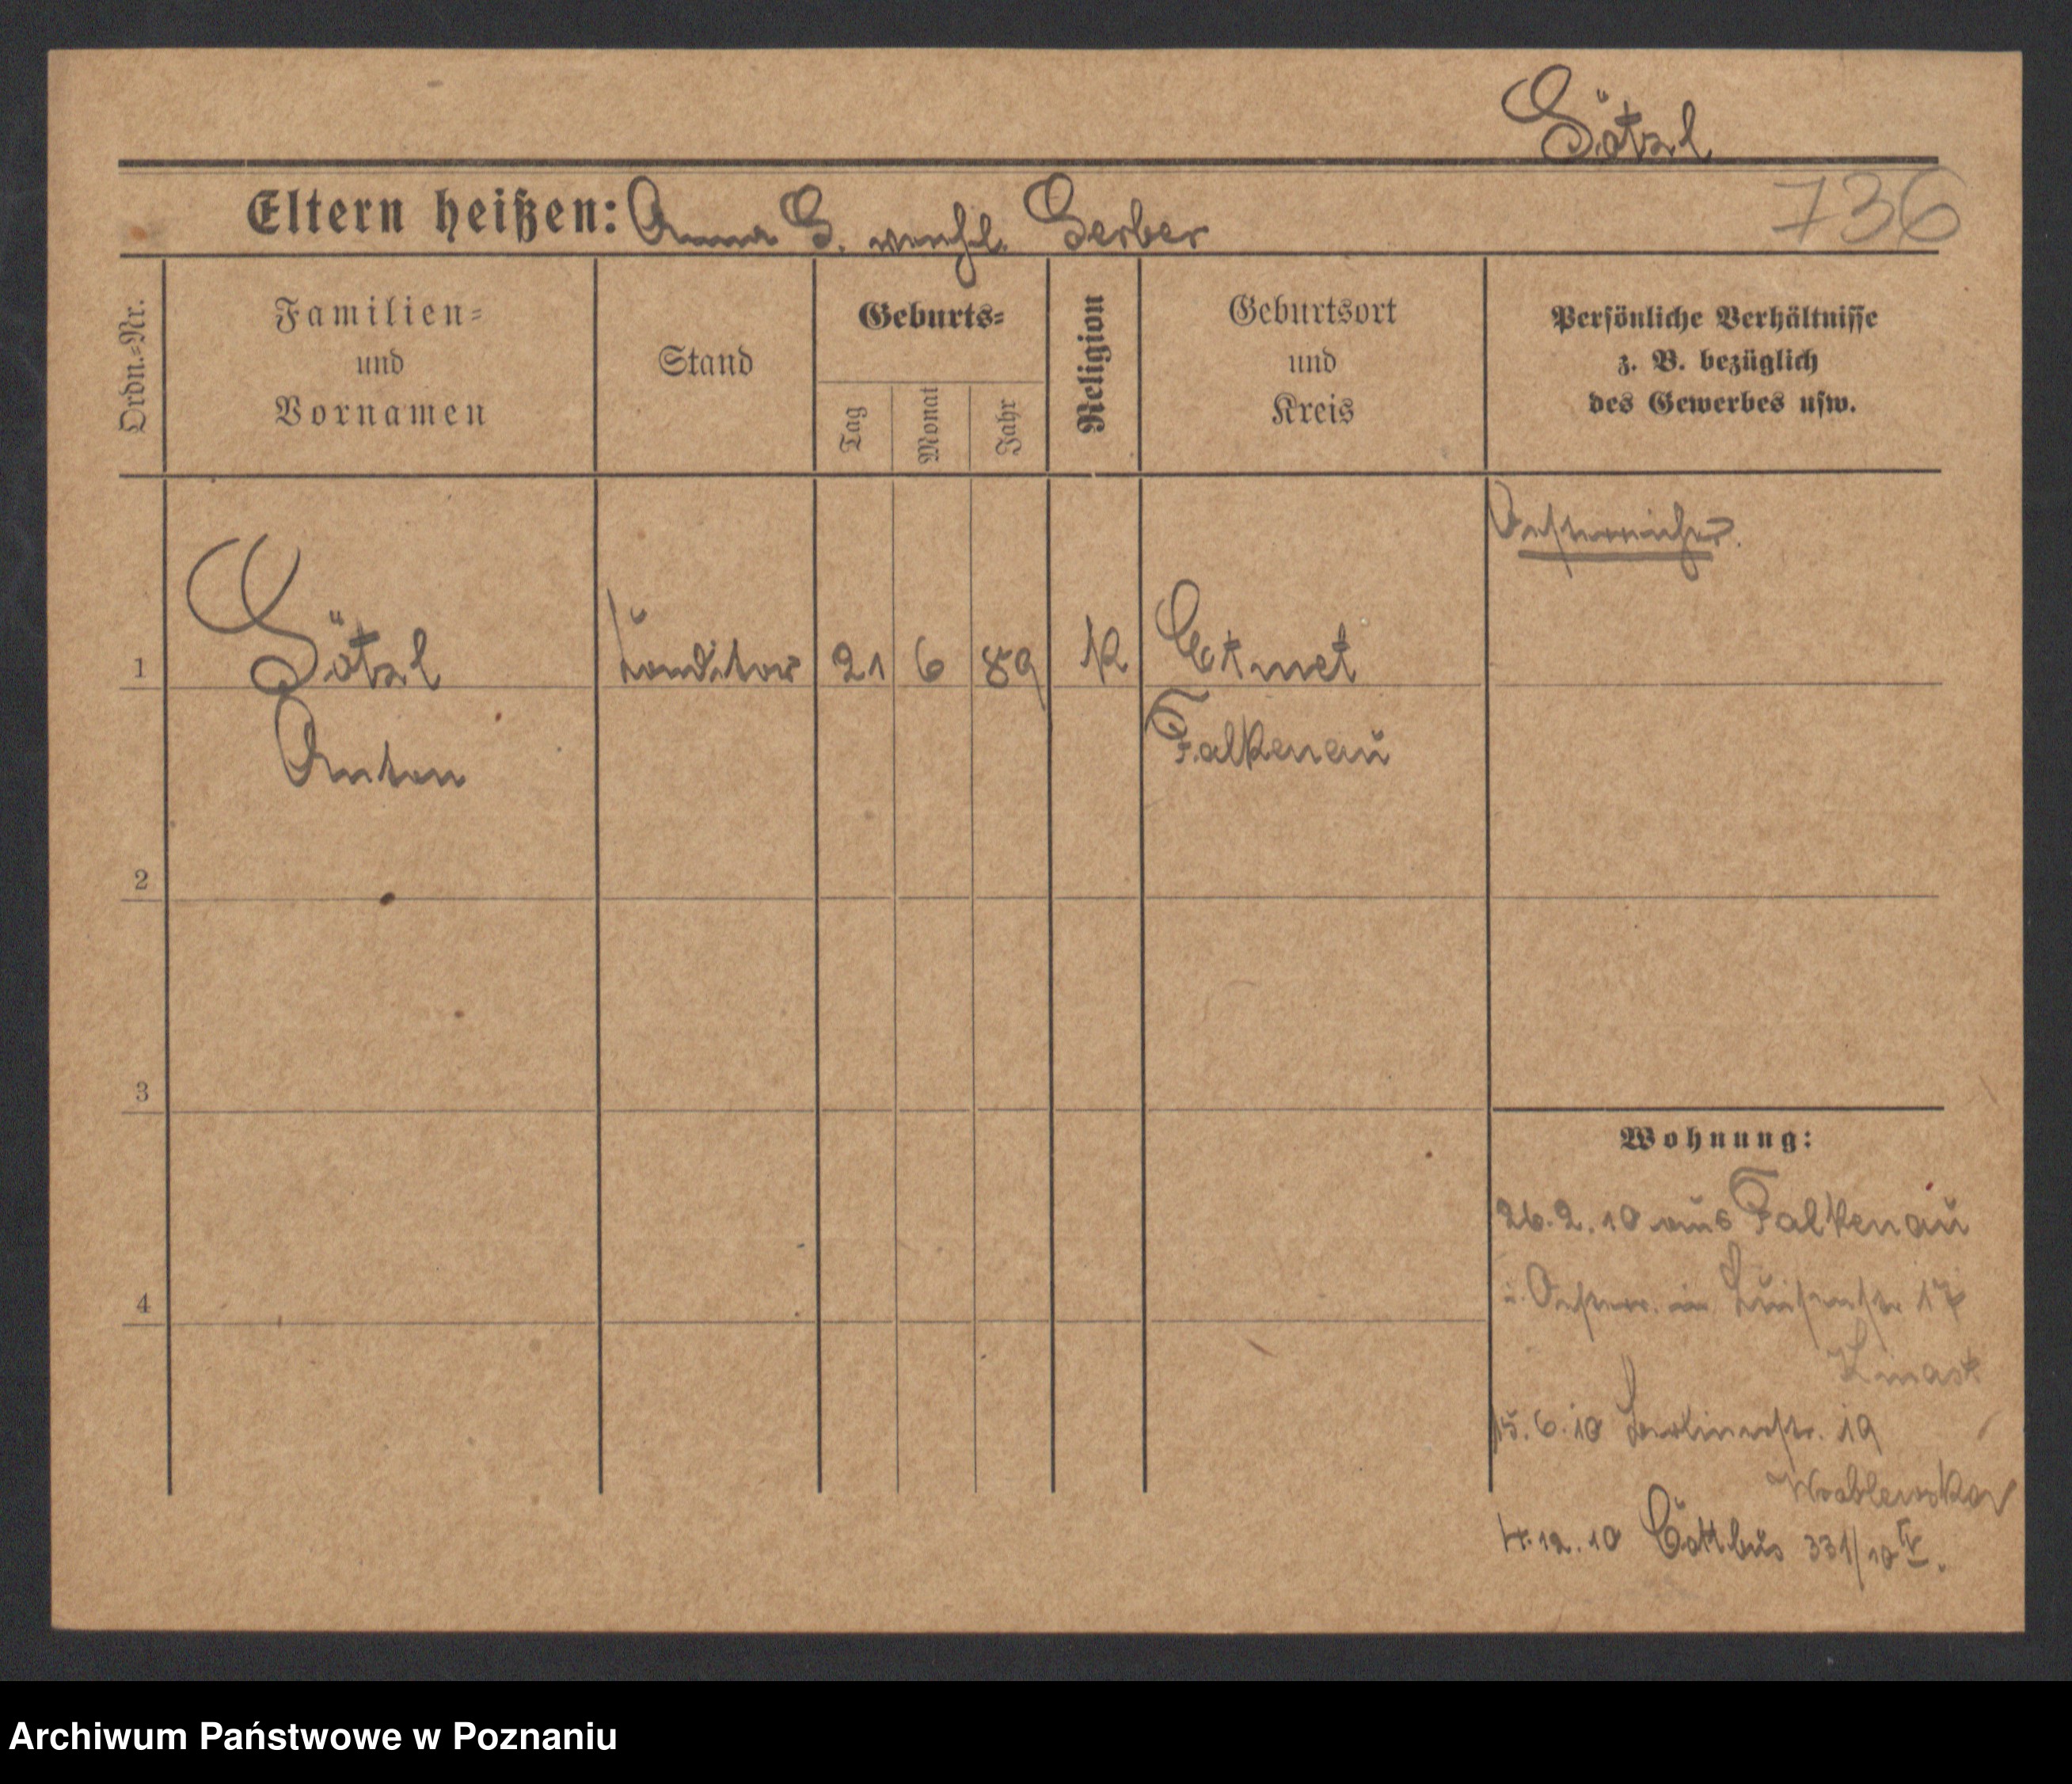 Götzl
Eltern heißen: Anna G. verehl. Gerber
736
Ordn.-Nr.
Familien-
und
Vornamen
Stand
Geburts-
Tag
Monat
Jahr
Religion
Geburtsort
und
Kreis
Persönliche Verhältnisse
z. B. bezüglich
des Gewerbes usw.
Oesterreicher.
1 Götzl Konditor 21 6 89 K
Anton Falkenau
2
3
4
Wohnung:
26.2.10 aus Falkenau
i. Oesterr. in Luisenstr. 17
15.6.10 Berlinerstr. 19
4.12.10 Cottbus 331/10 IV.
Archiwum Państwowe w Poznaniu